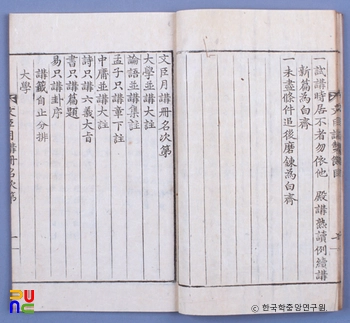 一試講時居不者勿依他 殿講熟讀例續講
新篇爲白齊
一未盡條件追後磨鍊爲白齊
文臣月講冊名次第
大學並講大註
論語並講集註
孟子只講章下註
中庸並講大註
詩只講六義大旨
書只講篇題
易只講卦序
講籤自止分排
大學
文臣月講冊名次第
一
© 한국학중앙연구원